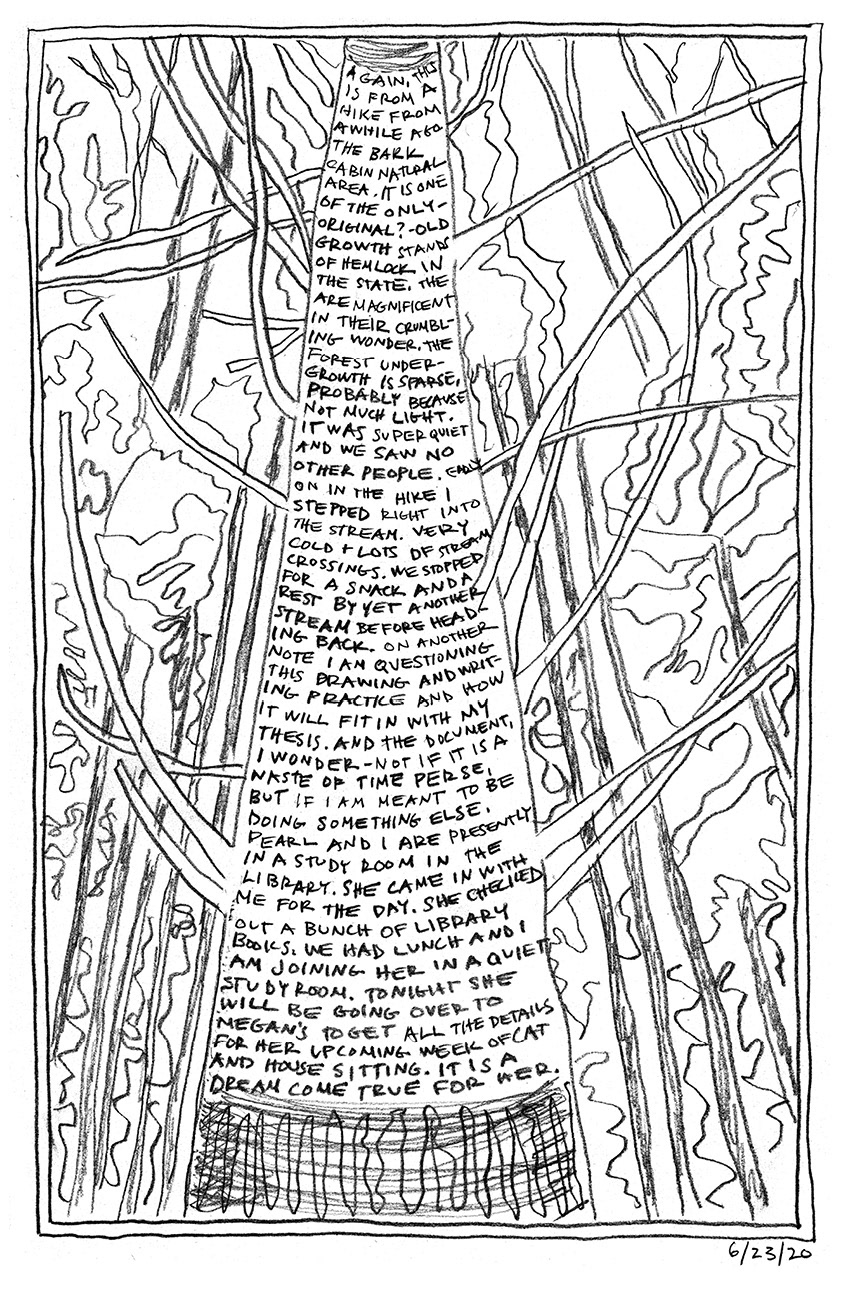 AGAIN, THIS
IS FROM A
HIKE FROM
AWHILE AGO
THE BARK
CABIN NATURAL
AREA. IT IS ONE
OF THE ONLY-
ORIGINAL?-OLD
GROWTH STANDS
OF HEMLOCK IN
THE STATE. THE
ARE MAGNIFICENT
IN THEIR CRUMBL-
ING WONDER. THE
FOREST UNDER-
GROWTH IS SPARSE,
PROBABLY BECAUSE
NOT MUCH LIGHT.
IT WAS SUPER QUIET
AND WE SAW NO
OTHER PEOPLE. EARLY
ON IN THE HIKE I
STEPPED RIGHT INTO
THE STREAM. VERY
COLD + LOTS OF STREAM
CROSSINGS. WE STOPPED
FOR A SNACK AND A
REST BY YET ANOTHER
STREAM BEFORE HEAD-
ING BACK. ON ANOTHER
NOTE I AM QUESTIONING
THIS DRAWING AND WRIT-
ING PRACTICE AND HOW
IT WILL FIT IN WITH MY
THESIS. AND THE DOCUMENT,
I WONDER-NOT IF IT IS A
WASTE OF TIME PER SE,
BUT IF I AM MEANT TO BE
DOING SOMETHING ELSE.
PEARL AND I ARE PRESENTLY
IN A STUDY ROOM IN THE
LIBRARY. SHE CAME IN WITH
ME FOR THE DAY. SHE CHECKED
OUT A BUNCH OF LIBRARY
BOOKS. WE HAD LUNCH AND I
AM JOINING HER IN A QUIET
STUDY ROOM. TONIGHT SHE
WILL BE GOING OVER TO
MEGAN'S TO GET ALL THE DETAILS
FOR HER UPCOMING WEEK OF CAT
AND HOUSE SITTING. IT IS A
DREAM COME TRUE FOR HER.
6/23/20